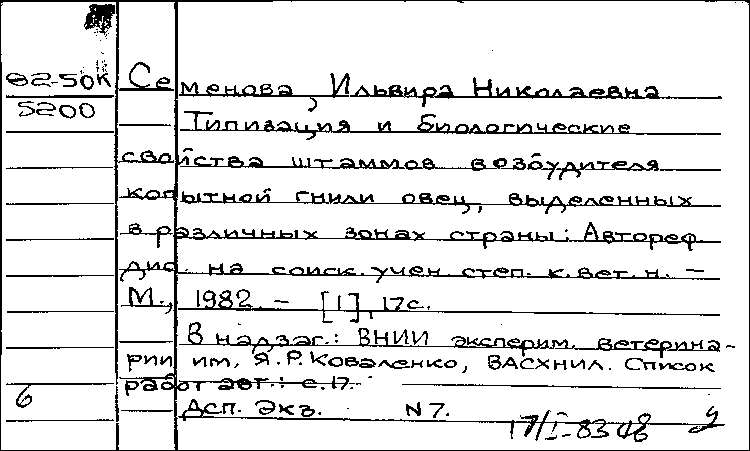 82-50К Семенова, Ильвира Николаевна
5200 Типизация и биологические
свойства штаммов возбудителя
копытной гнили овец, выделенных
в различных зонах страны: Автореф.
дис. на соиск. учен. степ. к. вет. н. –
М., 1982. – [1], 17с.
В надзаг.: ВНИИ эксперим. ветерина-
рии им. Я.Р. Коваленко, ВАСХНИЛ. Список
работ авт.: с. 17.
6 Дсп. Экз. N 7.
17/I-83